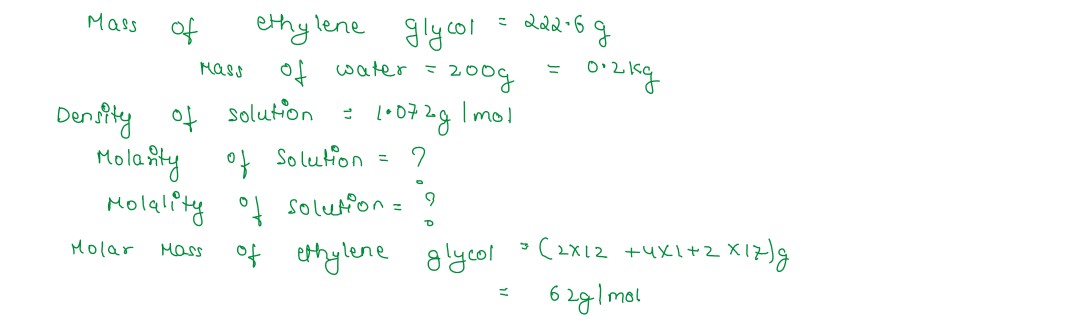 Mass of ethylene glycol = 222.6 g
Mass of water = 200g = 0.2 kg
Density of solution = 1.072g/mol
Molarity of Solution = ?
Molality of solution = ?
Molar Mass of ethylene glycol = (2x12 +4x1+2 x17)g
= 62g/mol